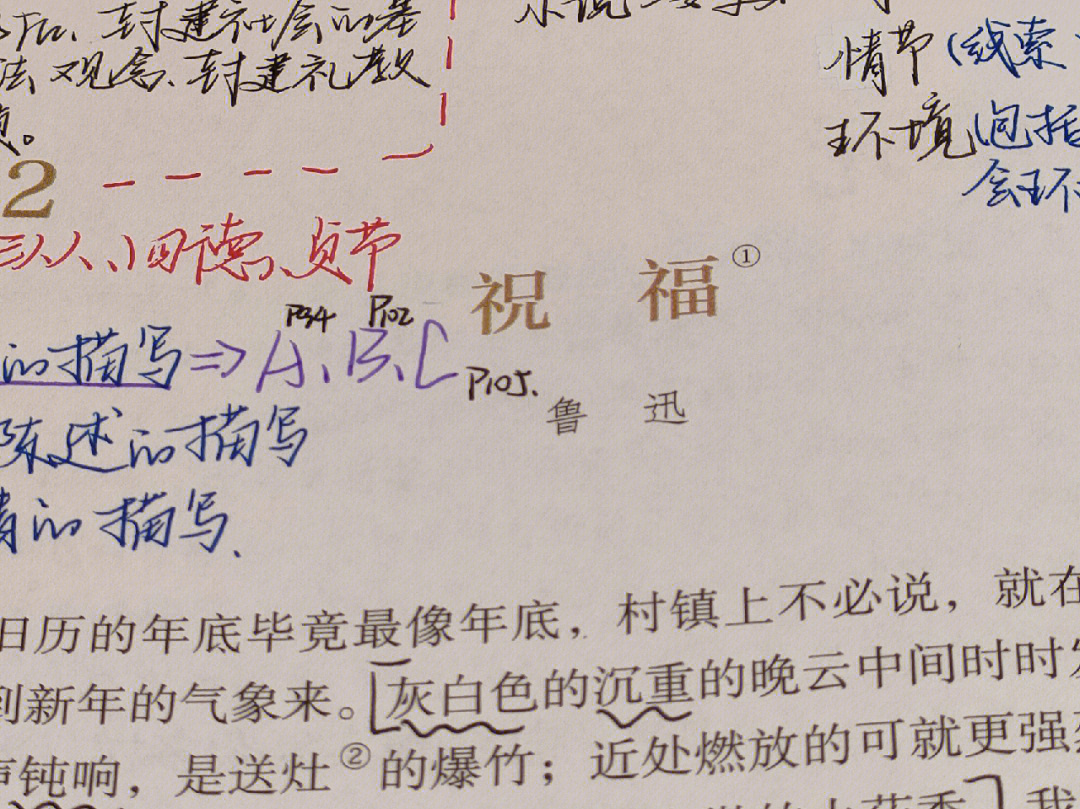 封建社会的基
法观念、封建礼教
情节(线索
环境(包括
会环
2
三从人、旧德、贞节
祝 福①
P34 P102
的描写⇒A、B、C P105.
鲁 迅
陈述的描写
的描写.
旧历的年底毕竟最像年底,村镇上不必说,就在
到新年的气象来。灰白色的沉重的晚云中间时时发
声钝响,是送灶②的爆竹;近处燃放的可就更强烈